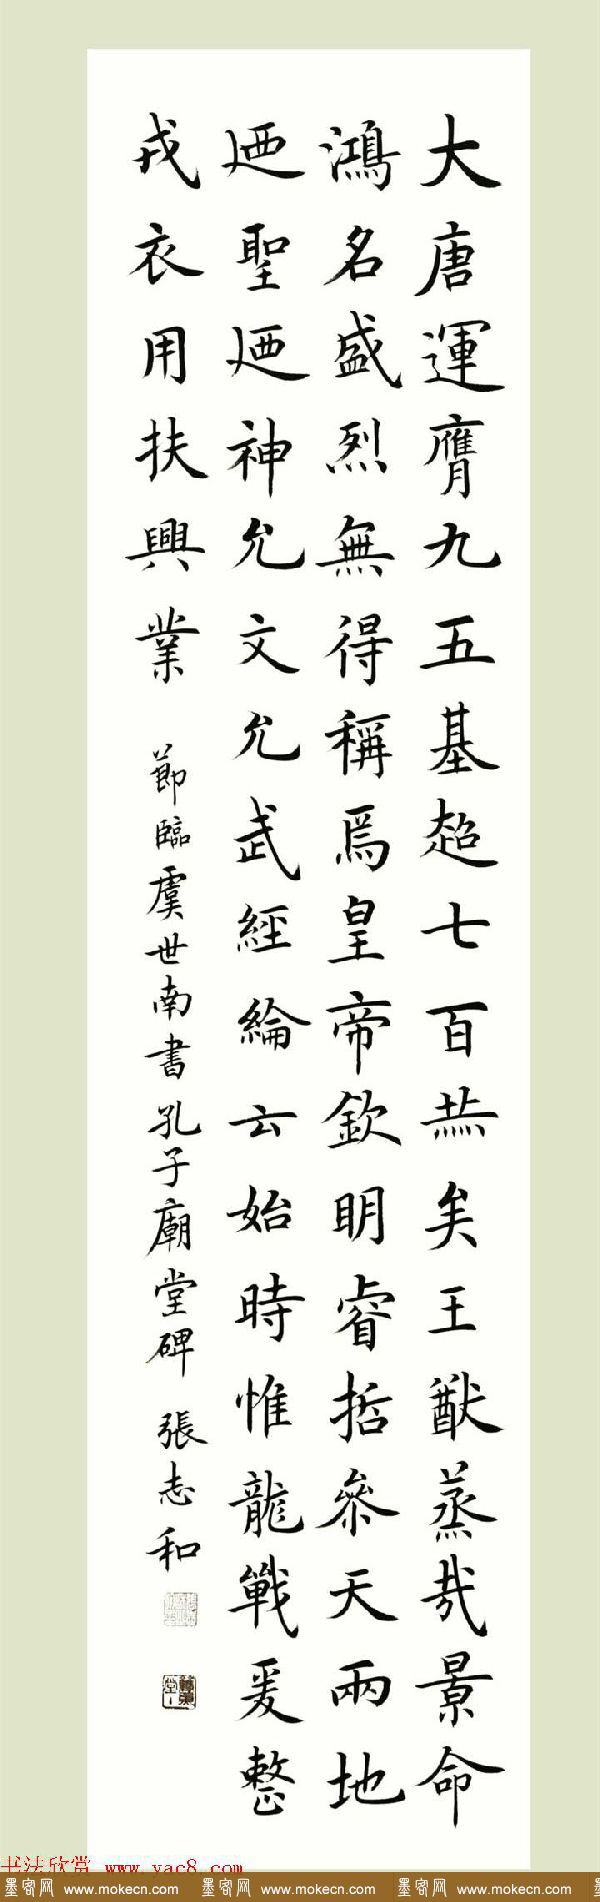 大唐運膺九五基超七百赫矣王猷蒸哉景命
鴻名盛烈無得稱焉皇帝欽明睿哲參天兩地
迺聖迺神允文允武經綸云始時惟龍戰爰整
戎衣用扶興業 節臨虞世南書孔子廟堂碑 張志和
书法欣赏 www.yac8.com
墨客网 www.mokecn.com 墨客网 www.mokecn.com 墨客网 www.mokecn.com